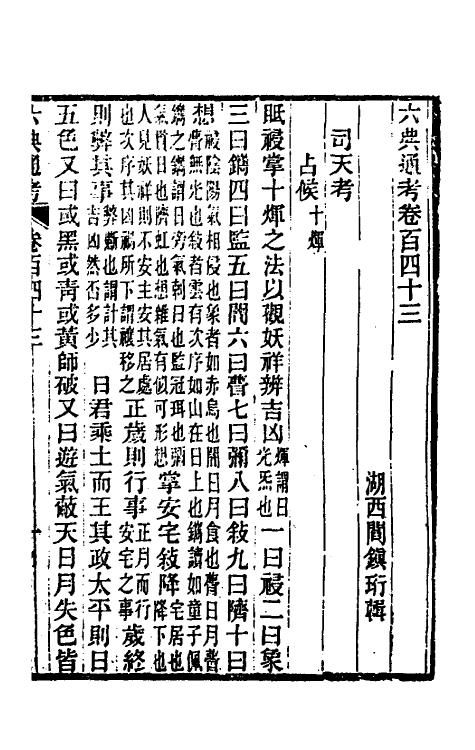 六典通考卷百四十三
湖西閻鎮珩輯
司天考
占候十煇
眡祲掌十煇之法以觀妖祥辨吉凶煇謂日光炁也一曰祲二曰象
三曰鑴四曰監五曰闇六曰瞢七曰彌八曰敍九曰隮十曰
想祲陰陽氣相侵也象者如赤鳥也闇日月食也瞢日月瞢瞢無光也敍者雲有次序如山在日上也鑴讀如童子佩
鑴之鑴謂日旁氣刺日也監冠珥也彌氣貫日也隮虹也想雜氣有似可形想掌安宅敍降宅居也降下也
人見妖祥則不安主安其居處也次序其凶禍所下謂禳移之正歲則行事正月而行安宅之事歲終
則弊其事弊斷也謂計其吉凶然否多少　日君乘土而王其政太平則日
五色又曰或黑或青或黃師破又曰遊氣蔽天日月失色皆
六典通考
卷百四十三
一